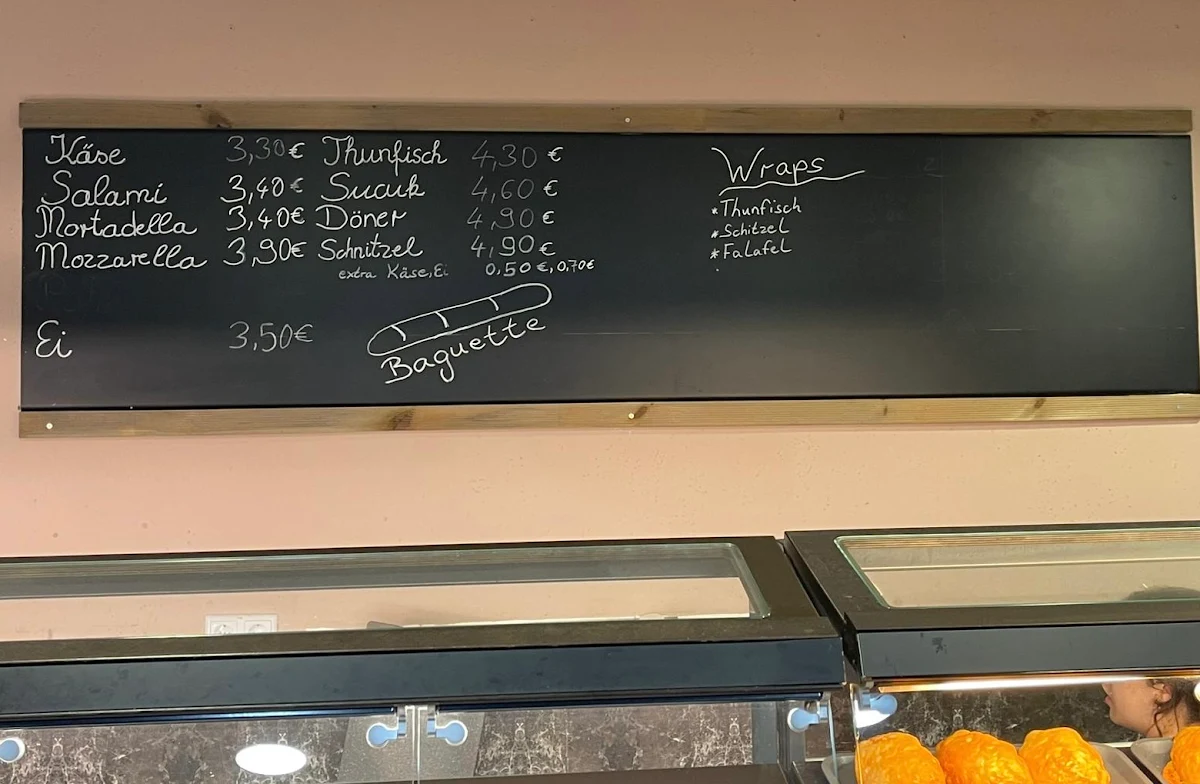 Käse 3,30€ Thunfisch 4,30 €
Salami 3,40€ Sucuk 4,60 €
Mortadella 3,40€ Döner 4,90 €
Mozzarella 3,90€ Schnitzel 4,90 €
extra Käse,Ei 0,50€,0,70€
Ei 3,50€
Baguette
Wraps
*Thunfisch
*Schitzel
*Falafel